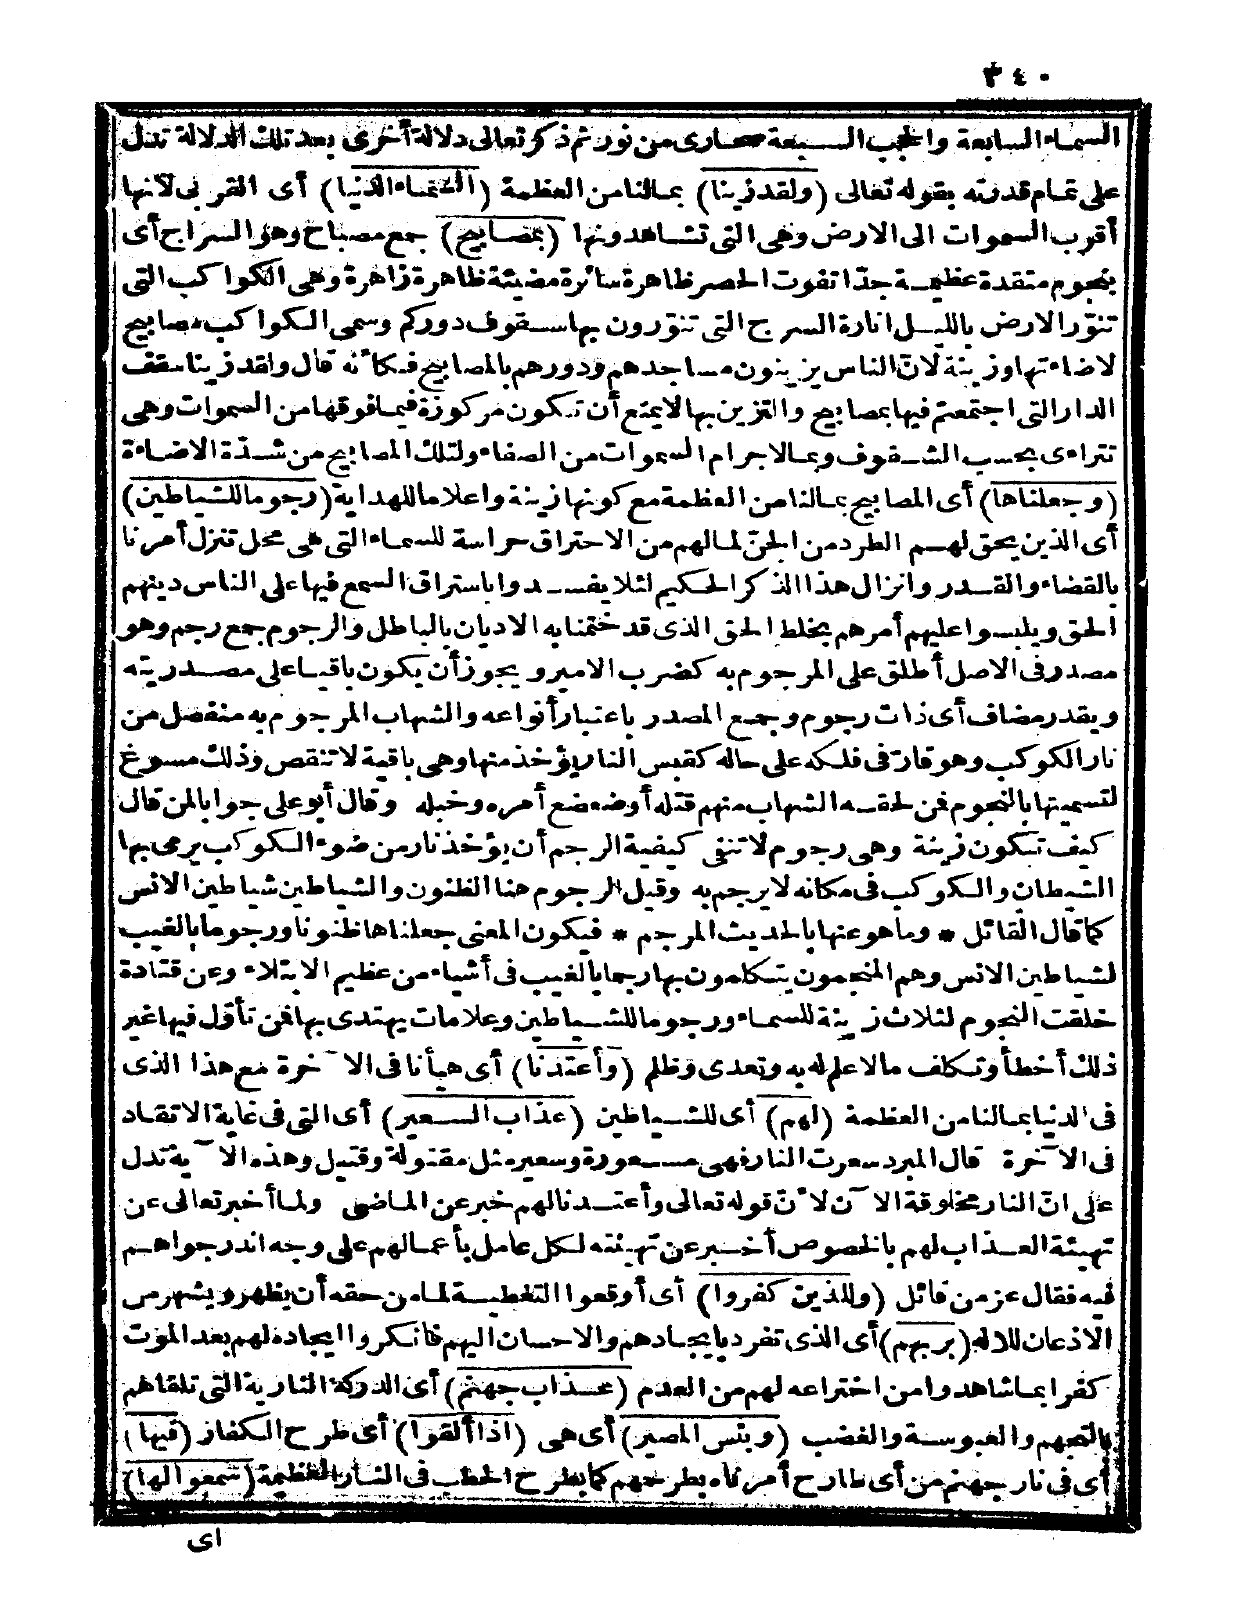 ٣٤٠
السماء السابعة والحجب السبعة صحارى من نور ثم ذكر تعالى دلالة أخرى بعد تلك الدلالة تدل
على تمام قدرته بقوله تعالى (ولقد زينا) بمالنا من العظمة (السماء الدنيا) أى القربى لانها
أقرب السموات الى الارض وهى التى تشاهدونها (بمصابيح) جمع مصباح وهو السراج أى
بنجوم متقدة عظيمة جدّا تفوت الحصر ظاهرة سائرة مضيئة ظاهرة زاهرة وهى الكواكب التى
تنوّر الارض بالليل انارة السرج التى تنوّرون بها سقوف دوركم وسمى الكواكب مصابيح
لاضاءتها وزينة لانّ الناس يزينون مساجدهم ودورهم بالمصابيح فكأنه قال ولقد زينا سقف
الدار التى اجتمعتم فيها بمصابيح والتزيين بها لا يمنع أن تكون مركوزة فيما فوقها من السموات وهى
تتراءى بحسب الشفوف وبمالاجرام السموات من الصفاء ولتلك المصابيح من شدّة الاضاءة
(وجعلناها) أى المصابيح بمالنا من العظمة مع كونها زينة واعلاما للهداية (رجوما للشياطين)
أى الذين يحق لهم الطرد من الجنّ لما لهم من الاحتراق حراسة للسماء التى هى محل تنزل أمرنا
بالقضاء والقدر وانزال هذا الذكر الحكيم لئلا يفسدوا باستراق السمع فيها على الناس دينهم
الحق ويلبسوا عليهم أمرهم بخلط الحق الذى قد ختمنا به الاديان بالباطل والرجوم جمع رجم وهو
مصدر فى الاصل أطلق على المرجوم به كضرب الامير ويجوز أن يكون باقيا على مصدريته
ويقدر مضاف أى ذات رجوم وجمع المصدر باعتبار أنواعه والشهاب المرجوم به منفصل من
نار الكوكب وهو قارّ فى فلكه على حاله كقبس النار يؤخذ منها وهى باقية لا تنقص وذلك مسوغ
لتسميتها بالنجوم فمن لحقه الشهاب منهم قتله أو ضعضع أمره وخبله وقال أبو على جوابا لمن قال
كيف تكون زينة وهى رجوم لا تنفى كيفية الرجم أن يؤخذ نار من ضوء الكوكب يرمى بها
الشيطان والكوكب فى مكانه لا يرجم به وقيل الرجوم هنا الظنون والشياطين شياطين الانس
كما قال القائل * وما هو عنها بالحديث المرجم * فيكون المعنى جعلناها ظنونا ورجوما بالغيب
لشياطين الانس وهم المنجمون يتكلمون بها رجما بالغيب فى أشياء من عظيم الابتلاء وعن قتادة
خلقت النجوم لثلاث زينة للسماء ورجوما للشياطين وعلامات يهتدى بها فمن تأوّل فيها غير
ذلك أخطأ وتكلف مالا علم له به وتعدى وظلم (وأعتدنا) أى هيأنا فى الآخرة مع هذا الذى
فى الدنيا بمالنا من العظمة (لهم) أى للشياطين (عذاب السعير) أى التى فى غاية الاتقاد
فى الآخرة قال المبرد سعرت النار فهى مسعورة وسعير مثل مقتولة وقتيل وهذه الآية تدل
على انّ النار مخلوقة الآن لانّ قوله تعالى وأعتدنا لهم خبر عن الماضى ولما أخبر تعالى عن
تهيئة العذاب لهم بالخصوص أخبر عن تهيئته لكل عامل بأعمالهم على وجه اندرجوا هم
فيه فقال عز من قائل (وللذين كفروا) أى أوقعوا التغطية لما من حقه أن يظهر ويشهر من
الاذعان للاله (بربهم) أى الذى تفرد بايجادهم والاحسان اليهم فانكروا ايجاده لهم بعد الموت
كفرا بما شاهدوا من اختراعه لهم من العدم (عذاب جهنم) أى الدركة النارية التى تلقاهم
بالتجهم والعبوسة والغضب (وبئس المصير) أى هى (اذا ألقوا) أى طرح الكفار (فيها)
أى فى نار جهنم من أى طارح أمرناه بطرحهم كما يطرح الحطب فى النار العظيمة (سمعوا لها)
اى